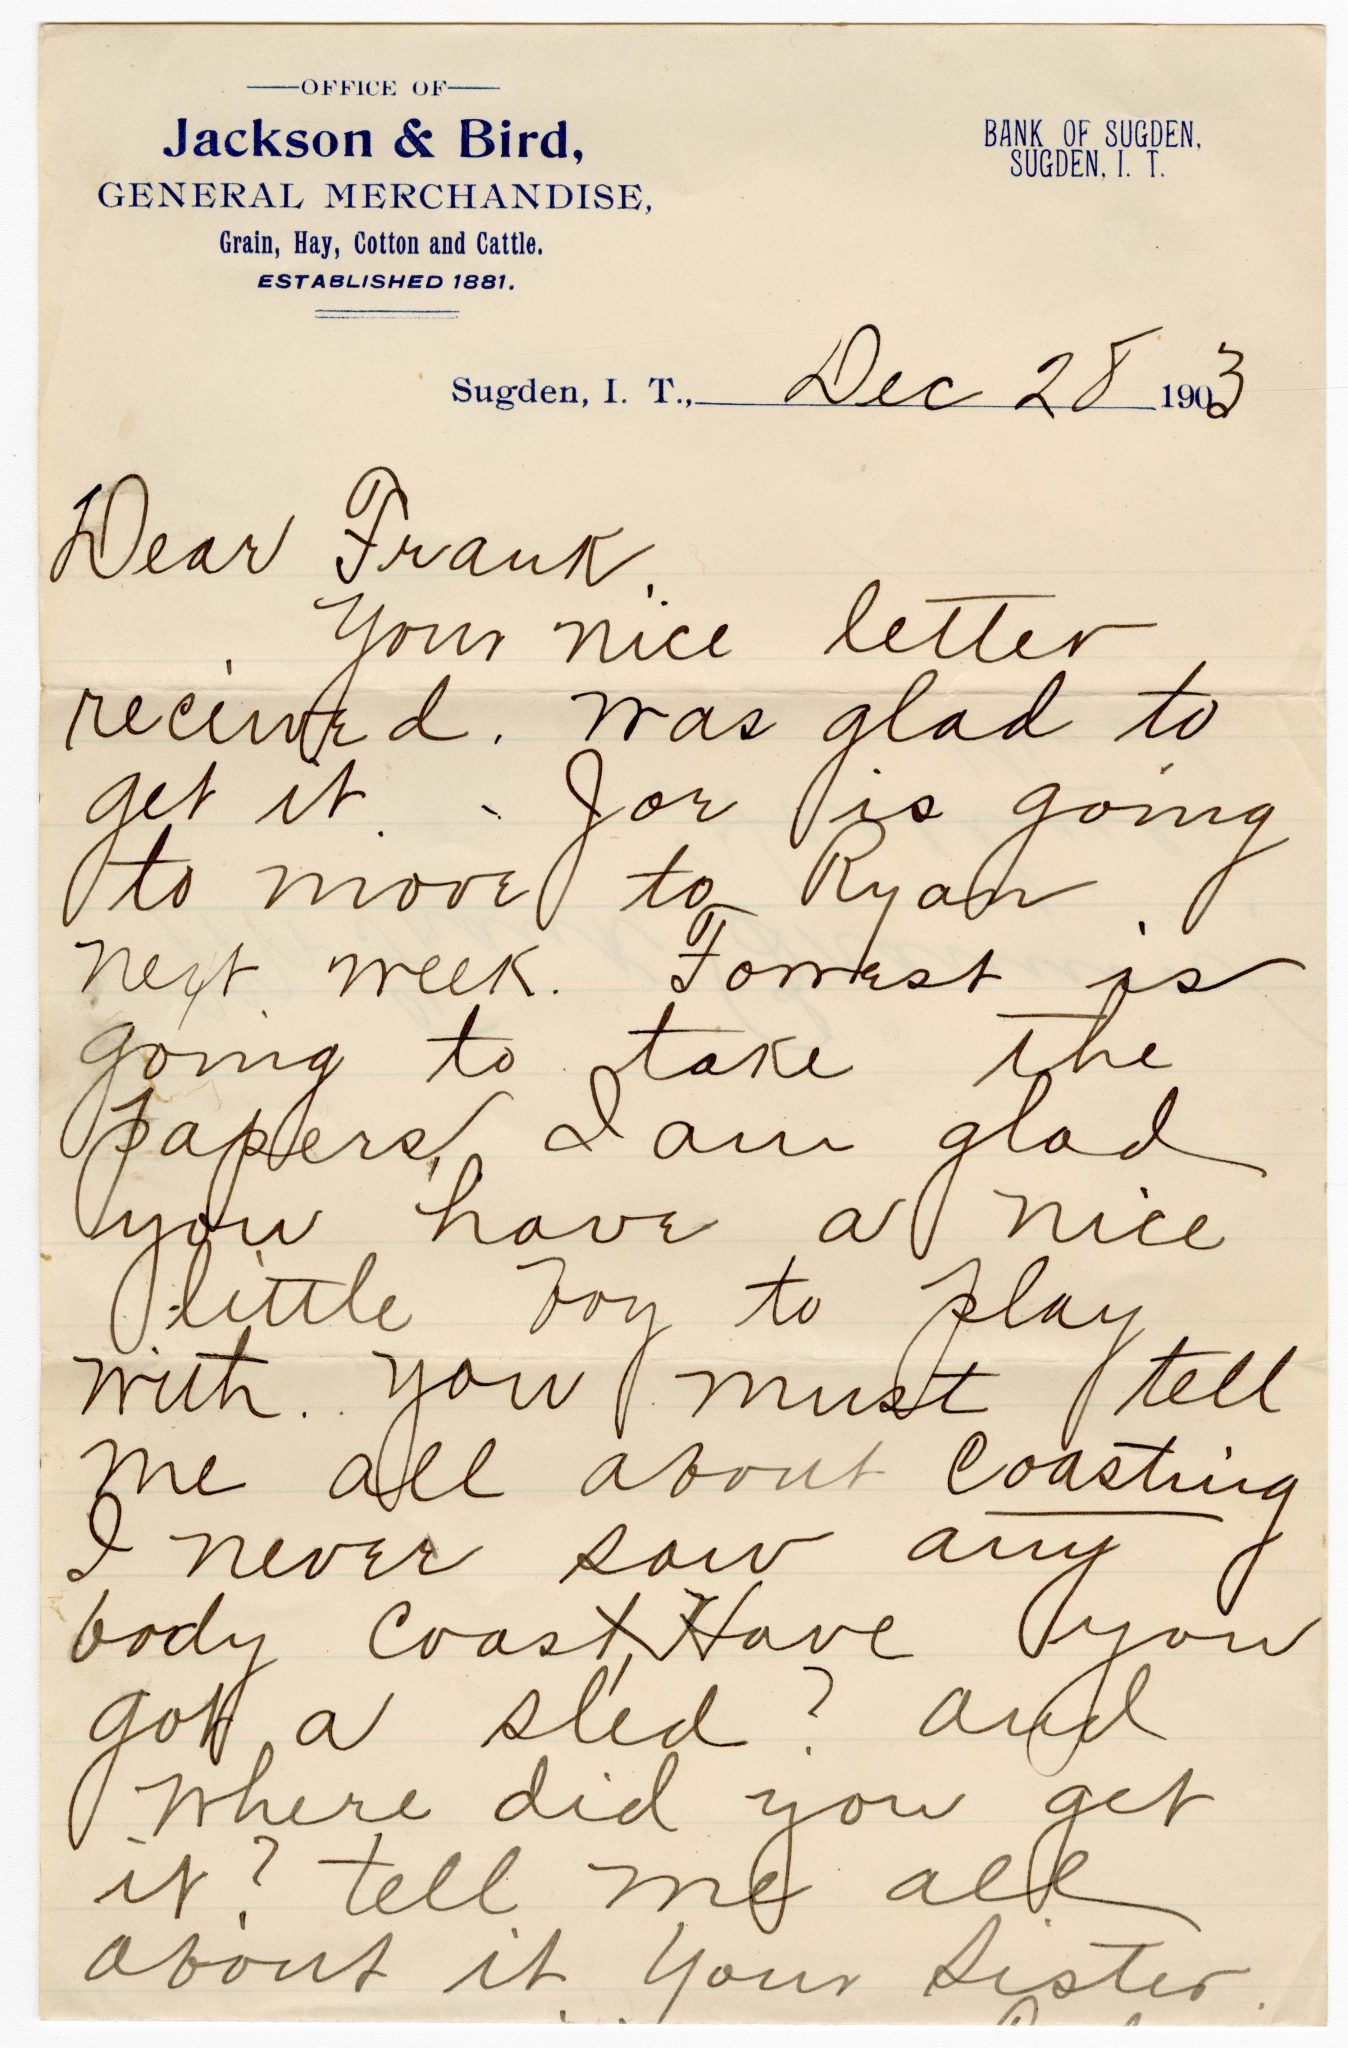 OFFICE OF
Jackson & Bird,
GENERAL MERCHANDISE,
Grain, Hay, Cotton and Cattle.
ESTABLISHED 1881.
BANK OF SUGDEN,
SUGDEN, I. T.
Sugden, I. T., Dec 28 1903
Dear Frank.
Your nice letter
recieved. was glad to
get it. Joe is going
to move to Ryan
next week. Forrest is
going to take the
papers, I am glad
you have a nice
little boy to play
with. you must tell
me all about Coasting
I never saw any
body Coast, Have you
got a sled? and
where did you get
it? tell me all
about it. Your Sister.